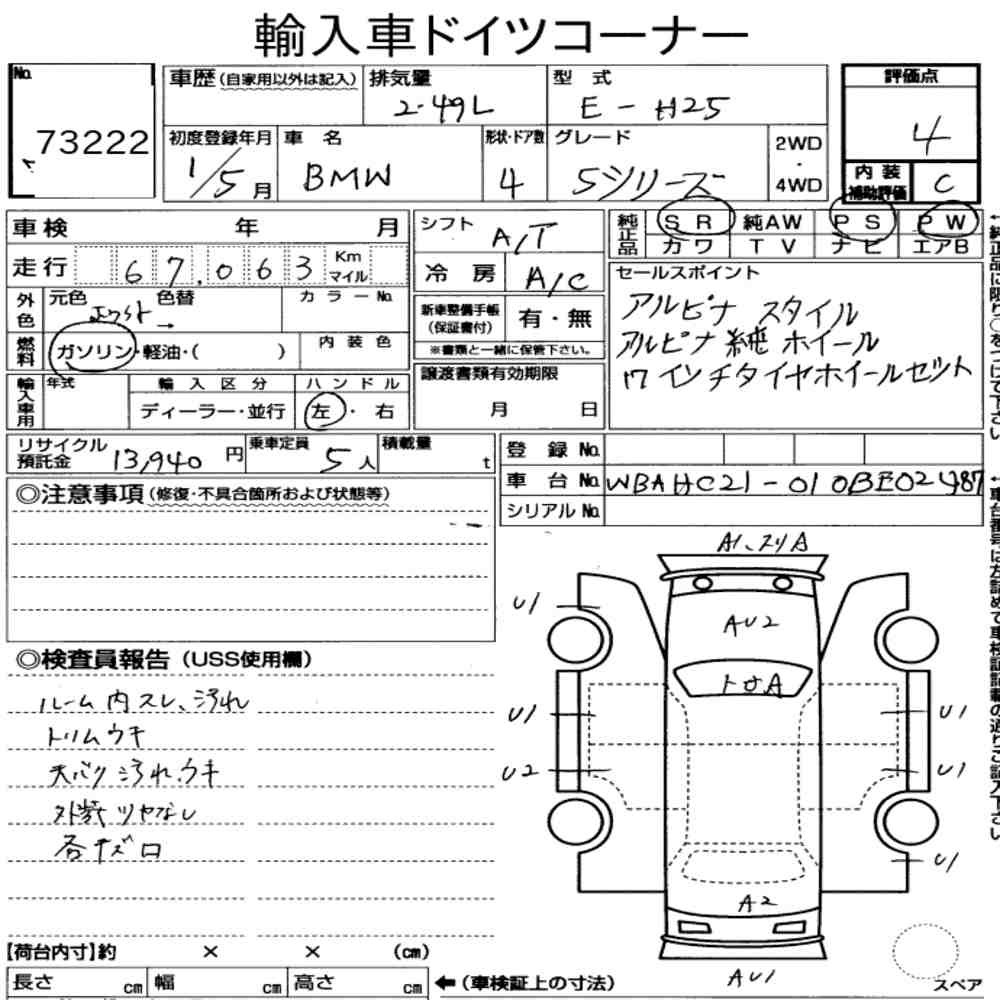 輸入車ドイツコーナー
No. 73222
車歴(自家用以外は記入) 排気量 2.49L 型式 E-H25 評価点 4
初度登録年月 1/5月 車名 BMW 形状・ドア数 4 グレード 5シリーズ 2WD・4WD 内装補助評価 C
車検 年 月 シフト A/T 純正品 SR 純AW PS PW
カワ TV ナビ エアB
走行 67,063 Km マイル 冷房 A/C
セールスポイント
アルピナ スタイル
アルピナ純 ホイール
17インチタイヤホイールセット
外色 元色 色替 → カラーNo.
新車整備手帳(保証書付) 有・無
※書類と一緒に保管下さい。
燃料 ガソリン・軽油・( ) 内装色
譲渡書類有効期限 月 日
輸入車用 年式 輸入区分 ハンドル
ディーラー・並行 左・右
リサイクル預託金 13,940円 乗車定員 5人 積載量 t
登録No.
車台No. WBAHC21-010BE02487
シリアルNo.
◎注意事項(修復・不具合箇所および状態等)
◎検査員報告(USS使用欄)
ルーム内スレ、汚れ
トリムウキ
天バク汚れ、ウキ
外装ツヤなし
各キズ ロ
A1、スリA
U1
AU2
トサA
U1 U1
U2 U1
U1
A2
AU1
【荷台内寸】約 × × (cm)
長さ cm 幅 cm 高さ cm ←(車検証上の寸法)
スペア
↑純正品に限り○をつけて下さい
↑車台番号は左詰めで車検証記載の通りご記入下さい